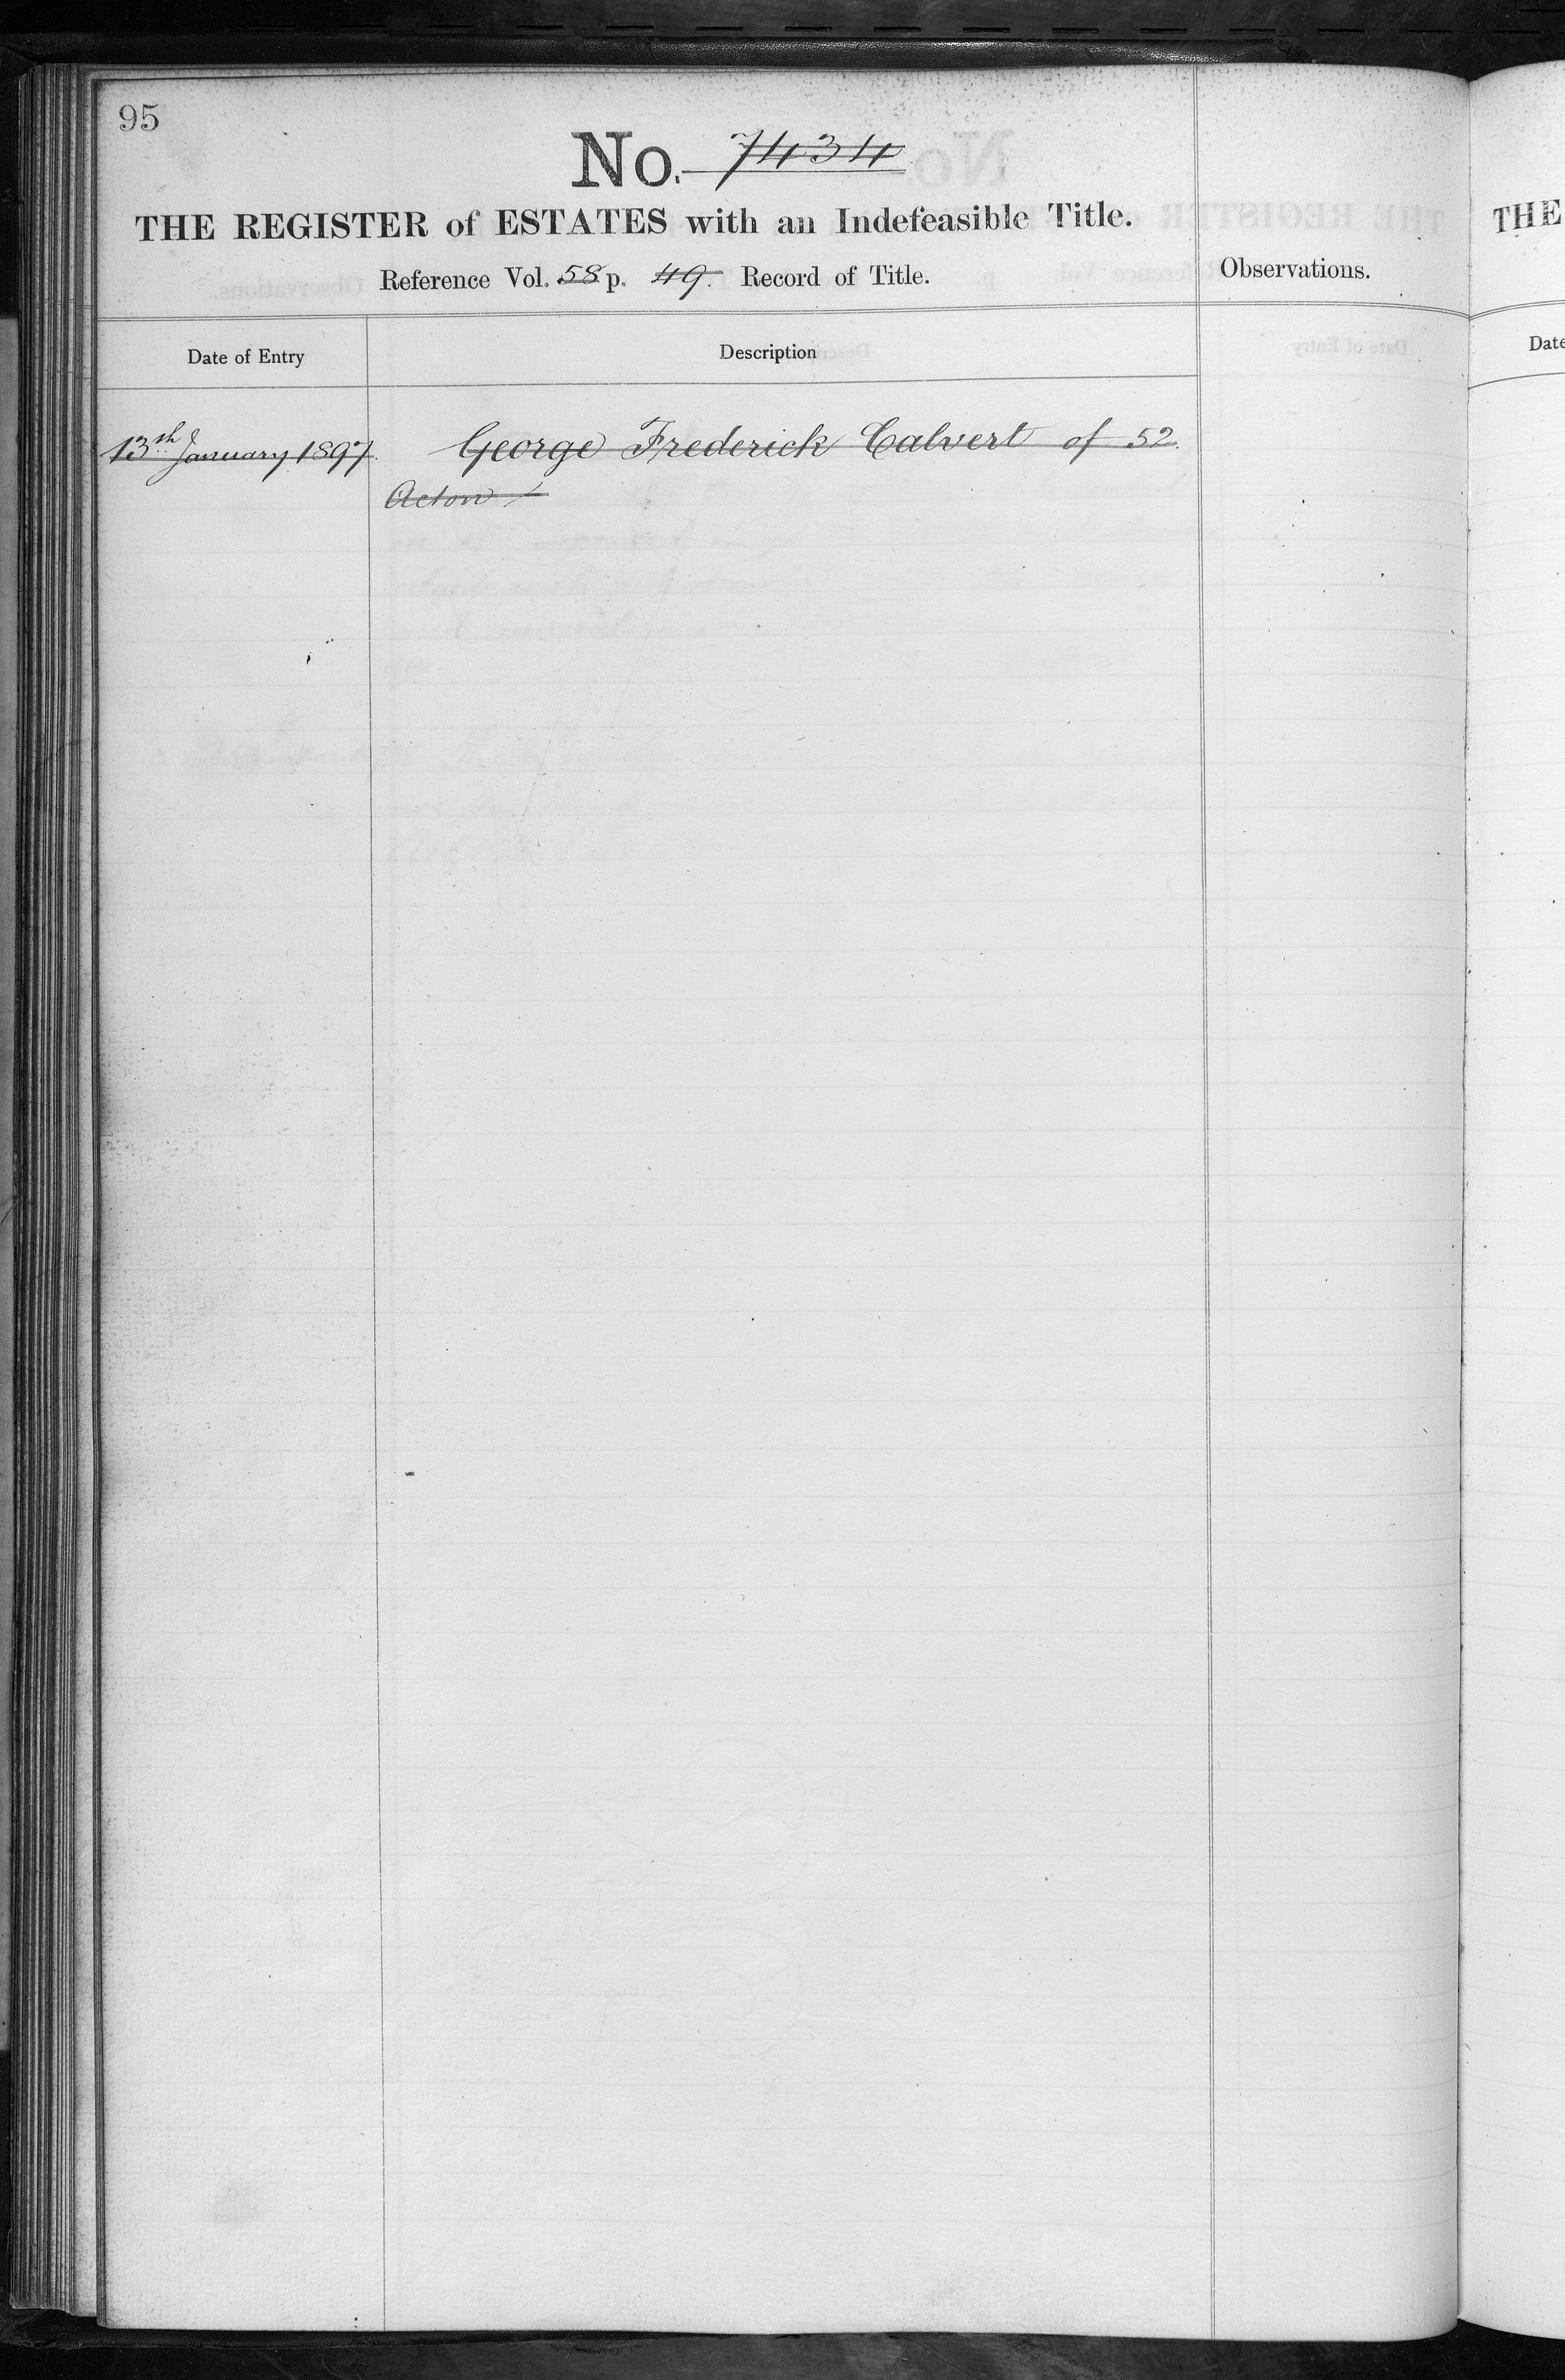 95
No. 7434
THE REGISTER of ESTATES with an Indefeasible Title.
Reference Vol. 58 p. 49. Record of Title.
Observations.
Date of Entry
Description
13th January 1897.
George Frederick Calvert of 52.
Acton
THE
Date